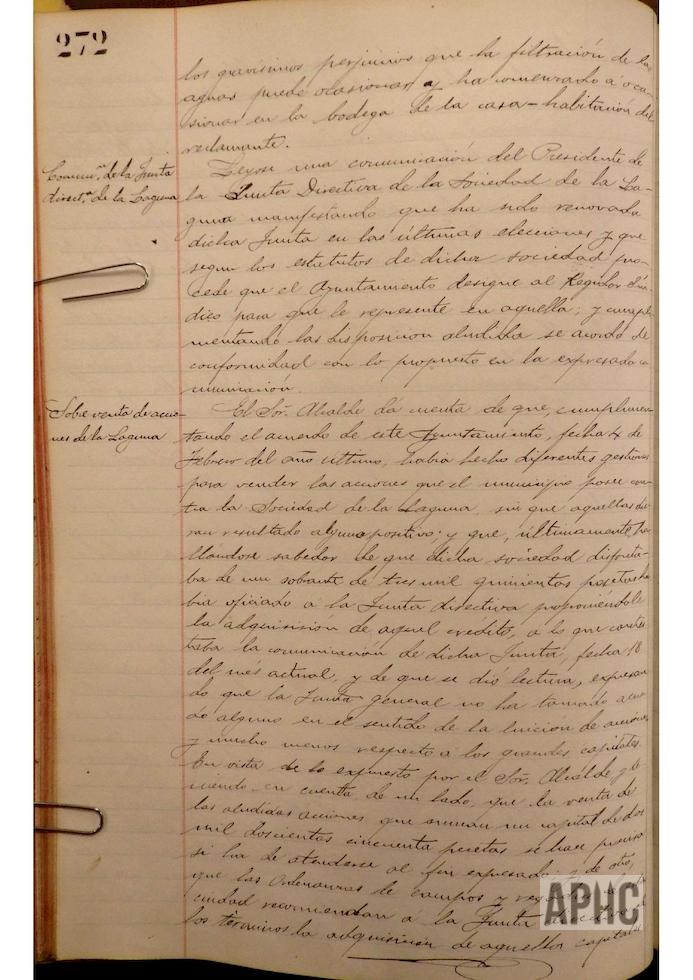 272
los gravisimos perjuicios que la filtración de las
aguas puede ocasionar y ha comenzado á oca-
sionar en la bodega de la casa-habitación del
reclamante.
Comun.n de la Junta
direct.a de la Laguna
Leyose una comunicación del Presidente de
la Junta Directiva de la Sociedad de la La-
guna manifestando que ha sido renovada
dicha Junta en las últimas elecciones y que
segun los estatutos de dicha sociedad pro-
cede que el Ayuntamiento designe al Regidor Sín-
dico para que le represente en aquella; y cumpli-
mentando la disposicion aludida se acordo de
conformidad con lo propuesto en la expresada co-
municación.
Sobre venta de accio-
nes de la Laguna
El Sor. Alcalde dá cuenta de que, cumplimen-
tando el acuerdo de este Ayuntamiento, fecha 4 de
Febrero del año último, habia hecho diferentes gestiones
para vender las acciones que el municipio posee con-
tra la Sociedad de la Laguna, sin que aquellas die-
ran resultado alguno positivo; y que, últimamente ha-
llandose sabedor de que dicha sociedad disfruta-
ba de un sobrante de tres mil quinientas pesetas ha-
bia oficiado a la Junta directiva proponiéndole
la adquisición de aquel crédito, a lo que contes-
taba la comunicación de dicha Junta, fecha 18
del més actual, y de que se dio lectura, expresan-
do que la Junta general no ha tomado acuer-
do alguno en el sentido de la luición de acciones
y mucho menos respecto a los grandes capitales.
En vista de lo expuesto por el Sor. Alcalde y te-
niendo en cuenta de un lado, que la venta de
las aludidas acciones que suman un capital de dos
mil doscientas cincuenta pesetas se hace precisa
si ha de atenderse al fin expresado y de otro,
que las Ordenanzas de campos y
ciudad recomiendan á la Junta
los terminos la adquisición de aquellos capitales
APHC